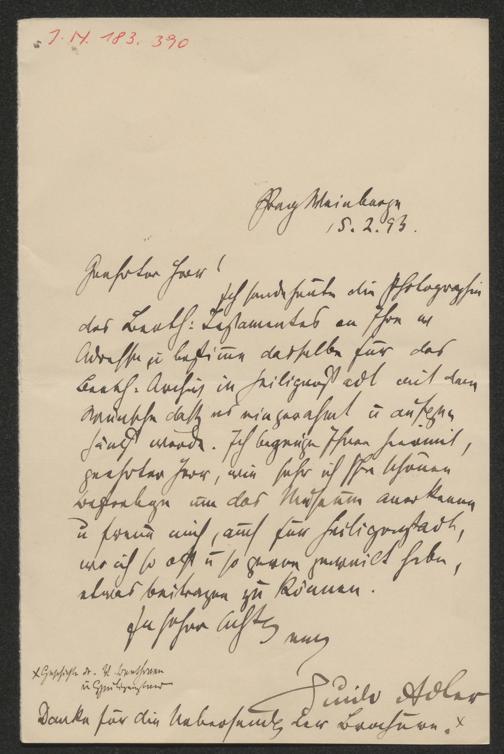 J. N. 183. 390
Prag Weinberge
15. 2. 93.
Geehrter Herr!
Ich sende heute die Photographie
des Beeth: Testamentes an Ihre w
Adresse u bestimme dasselbe für das
Beeth. Archiv in Heiligenstadt mit dem
Wunsche daß es eingerahmt u aufgehängt
werde. Ich bezeuge Ihnen hiermit,
geehrter Herr, wie sehr ich Ihr schönes
um das Museum anerkenne
u freue mich, auch für Heiligenstadt,
wo ich so oft u so gerne geweilt habe,
etwas beitragen zu können.
In hoher Achtung
Guido Adler
x Geschichte der
Danke für die Uebersendung der Brochüren. x